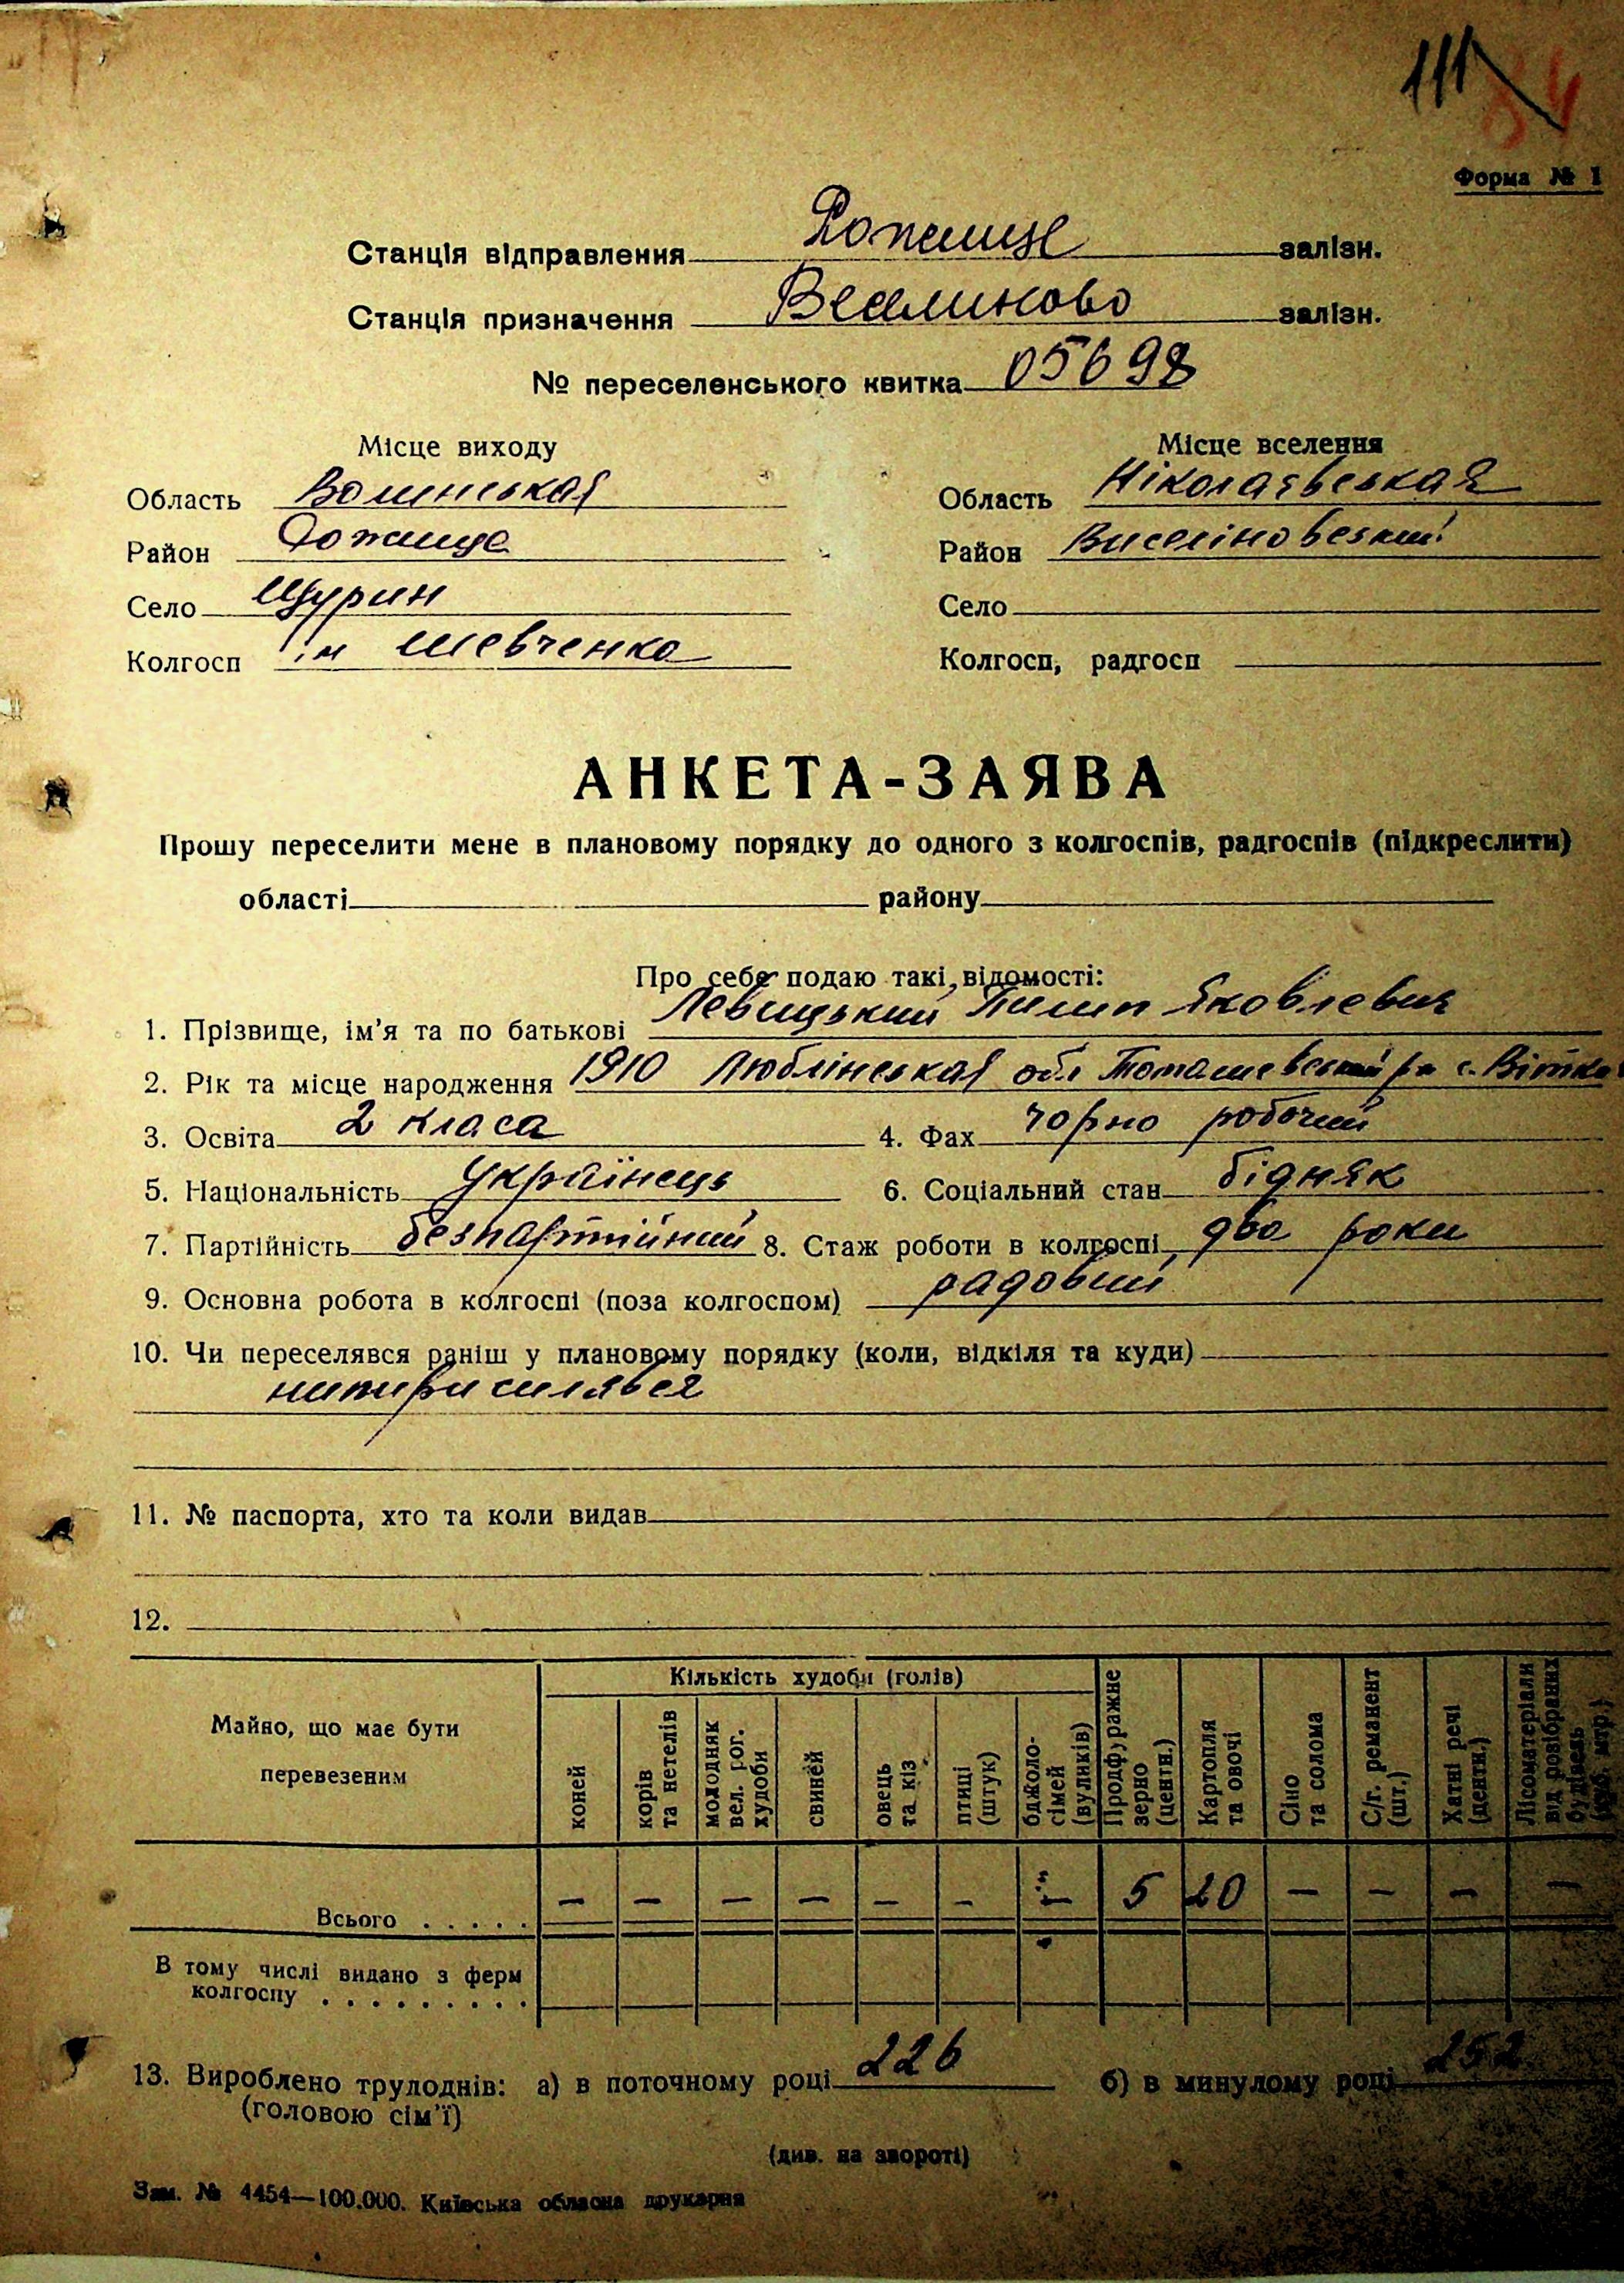 111 84
Форма № 1
Станція відправлення Рожище залізн.
Станція призначення Веселиново залізн.
№ переселенського квитка 05698
Місце виходу
Місце вселення
Область Волинськая
Область Ніколаєвськая
Район Рожище
Район Виселіновський
Село Щурин
Село
Колгосп ім Шевченко
Колгосп, радгосп
АНКЕТА-ЗАЯВА
Прошу переселити мене в плановому порядку до одного з колгоспів, радгоспів (підкреслити)
області району
Про себе подаю такі відомості:
1. Прізвище, ім'я та по батькові Левицький Пилип Яковлевич
2. Рік та місце народження 1910 Люблінськая обл Томашевський рн с.
3. Освіта 2 класа 4. Фах чорно робочий
5. Національність українець 6. Соціальний стан бідняк
7. Партійність безпартійний 8. Стаж роботи в колгоспі два роки
9. Основна робота в колгоспі (поза колгоспом) радовий
10. Чи переселявся раніш у плановому порядку (коли, відкіля та куди)
нипириселявся
11. № паспорта, хто та коли видав
12.
Майно, що має бути перевезеним
Кількість худоби (голів)
коней
корів та нетелів
молодняк вел. рог. худоби
свиней
овець та кіз
птиці (штук)
бджоло-сімей (вуликів)
Продфуражне зерно (центн.)
Картопля та овочі
Сіно та солома
С/г. реманент (шт.)
Хатні речі (центн.)
Лісоматеріали від розібраних будівель (куб. мтр.)
Всього . . . . . — — — — — — — 5 20 — — — —
В тому числі видано з ферм
колгоспу . . . . . . . . .
13. Вироблено трудоднів: а) в поточному році 226 б) в минулому році 252
(головою сім'ї)
(див. на звороті)
Зам. № 4454—100.000. Київська обласна друкарня